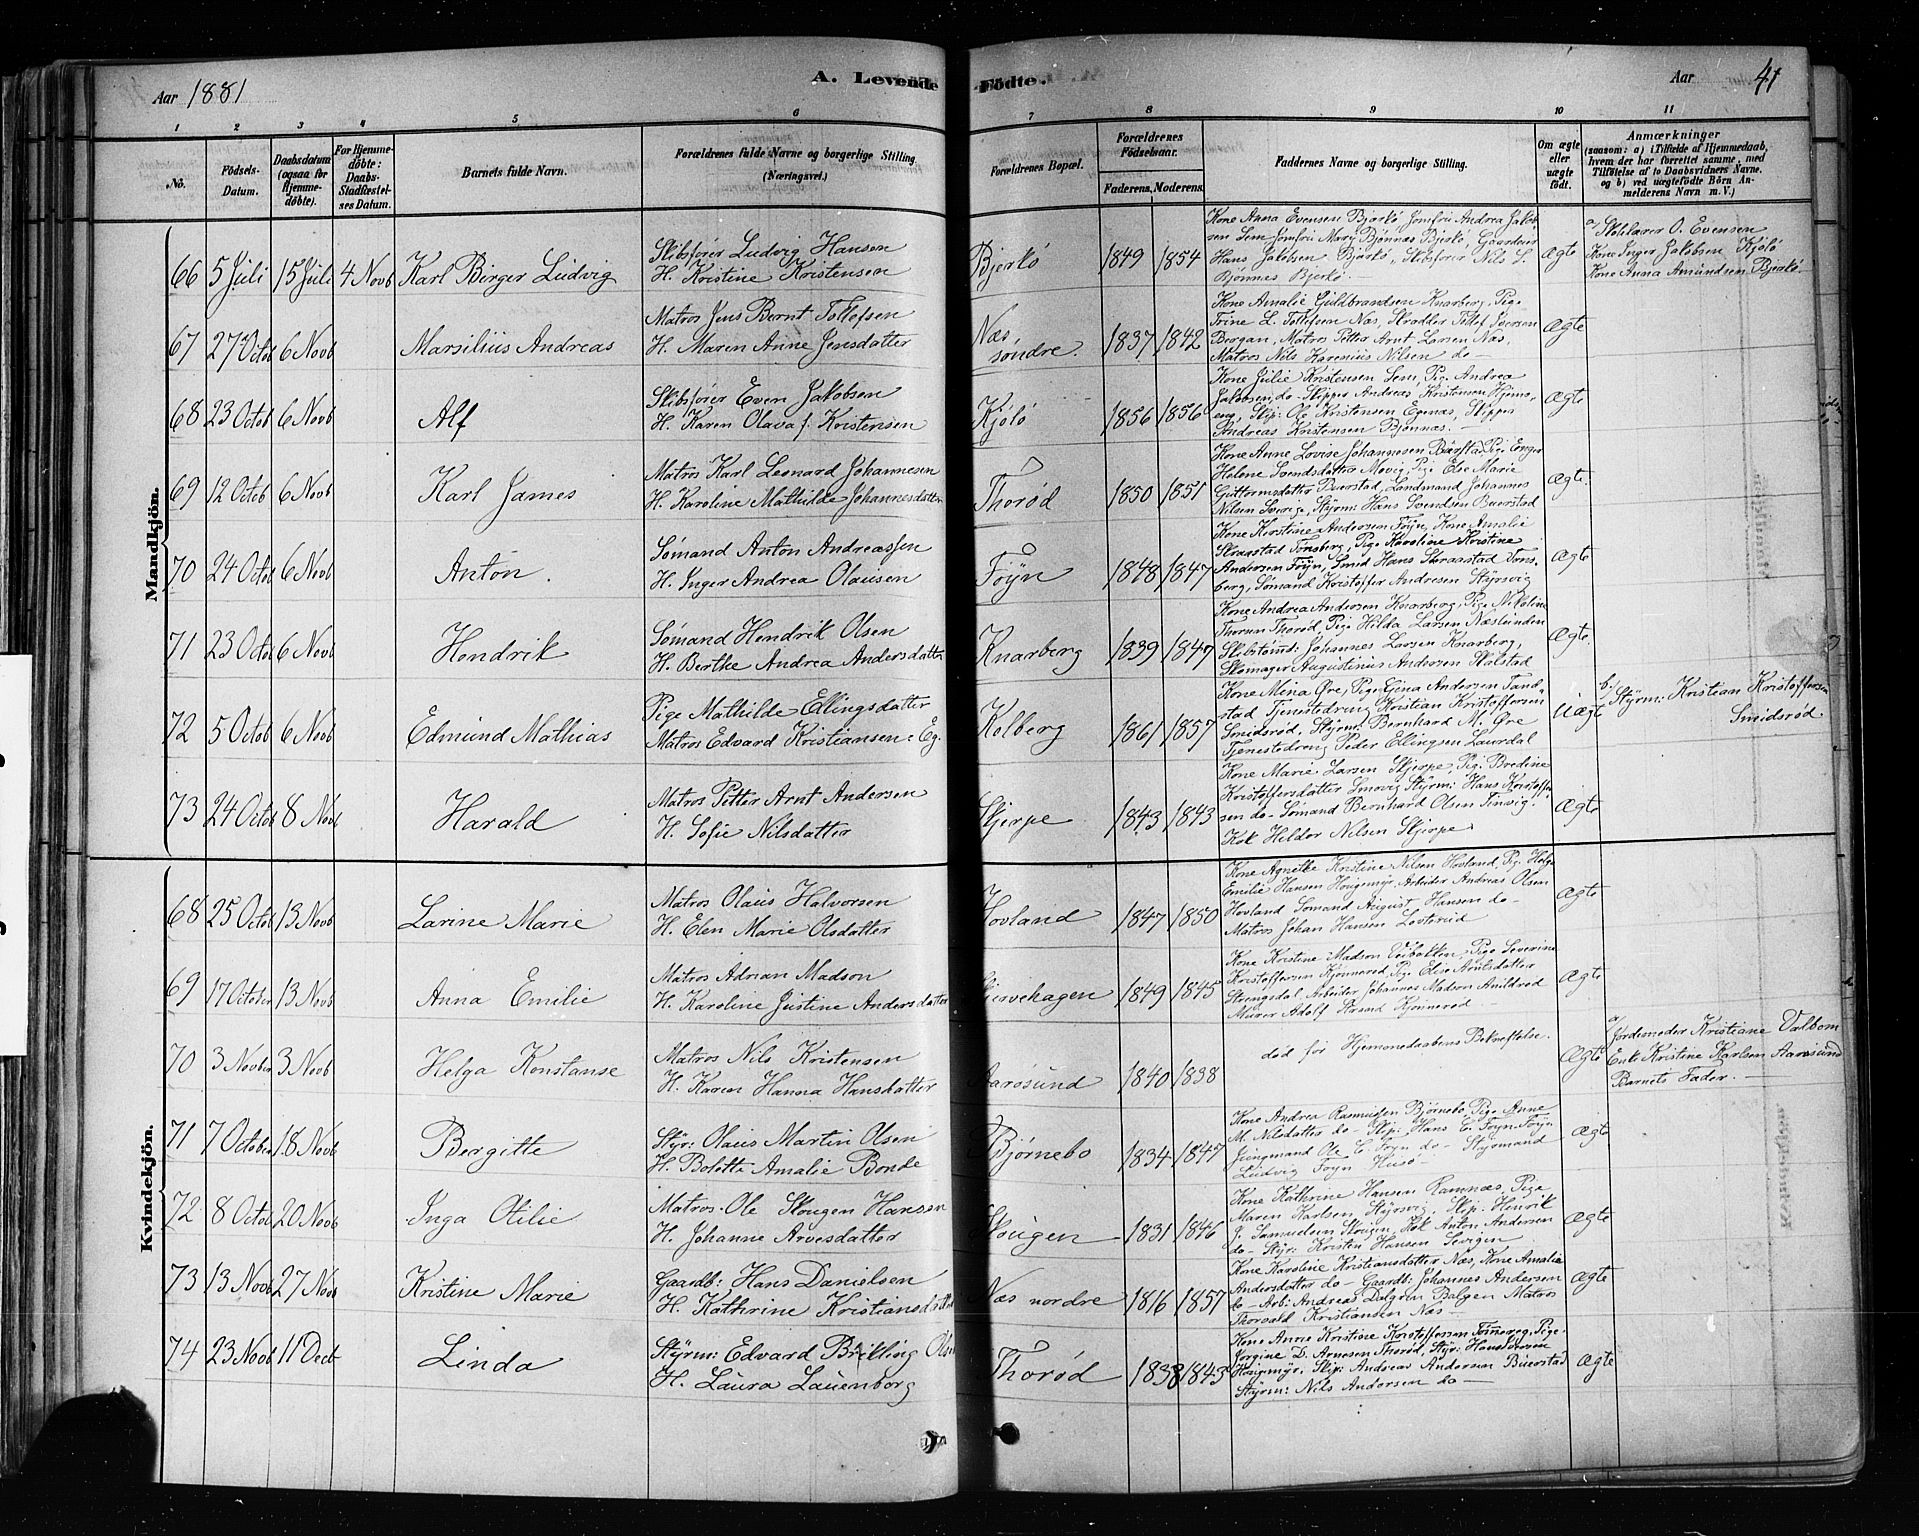 Aar 1881
A. Levende
Födte.
Aar
41
1
2
3
4
5
6
7
8
9
10
11
No.
Födsels-Datum.
Daabsdatum (ogsaa for Hjemmedöbte).
For Hjemmedöbte: Daabs-Stadfæstelses Datum.
Barnets fulde Navn.
Forældrenes fulde Navne og borgerlige Stilling. (Næringsvei.)
Forældrenes Bopæl.
Forældrenes Födselsaar.
Faderens. Moderens.
Faddernes Navne og borgerlige Stilling.
Om ægte eller uægte födt.
Anmærkninger
(saasom: a) i Tilfælde af Hjemmedaab, hvem der har forrettet samme, med Tilföielse af to Daabsvidners Navne. og b) ved uægtefödte Börn Anmelderens Navn m. V.)
Mandkjön.
66 5 Juli 15 Juli 4 Novb Karl Birger Ludvig
Skibsfører Ludvig Hansen
H. Kristine Kristensen
Bjerkö 1849 1854
Kone Anna Evensen Bjerkö Jomfru Andrea Jakob
sen Sem Jomfru Mary Bjönnes Bjerkö, Gaardeier
Hans Jakobsen Bjerkö, Skibsfører Nils S.
Bjönnes Bjerkö
Ægte
a, Skolelærer O. Evensen
Kone Inger Jakobsen Kjölö
Kone Anna Amundsen Bjerkö
67 27 Octob 6 Novb Marsilius Andreas
Matros Jens Bernt Tollefsen
H. Maren Anne Jensdatter
Næs søndre. 1837 1842
Kone Amalie Guldbrandsen Knarberg, Pige
Trine L. Tollefsen Næs, Skrædder Tollef Iversen
Bergan, Matros Petter Arnt Larsen Næs,
Matros Nils Karenius Nilsen do
Ægte
68 23 Octob 6 Novb Alf
Skibsfører Even Jakobsen
H. Karen Olava f. Kristensen
Kjölö 1856 1856
Kone Julie Kristensen Sem, Pige Andrea
Jakobsen do Skipper Andreas Kristensen Hjems
eng, Skip: Ole Kristensen Egenæs, Skipper
Andreas Kristensen Bjönnæs.
Ægte
69 12 Octob 6 Novb Karl James
Matros Karl Leonard Johannesen
H. Karoline Mathilde Johannesdatter
Thorød 1850 1851
Kone Anne Lovise Johannesen Buerstad, Pige
Helene Svendsdatter Movig, Pige Else Marie
Guttormsdatter Buerstad, Landmand Johannes
Nilsen Sverige, Styrm: Hans Svendsen Buerstad
Ægte.
70 24 Octob 6 Novb Anton.
Sømand Anton Andreassen
H. Inger Andrea Olausen
Föyn 1848 1847
Kone Kirstine Andersen Föyn, Kone Amalie
Skraastad Tønsberg, Pige Karoline Kristine
Andersen Föyn, Smid Hans Skraastad Töns
berg, Sømand Kristoffer Andresen Styrsvig
Ægte
71 23 Octob 6 Novb Hendrik
Sømand Hendrik Olsen
H. Berthe Andrea Andersdatter
Knarberg 1839 1847
Kone Andrea Andersen Knarberg, Pige Nikoline
Thorsen Thorød, Pige Hilda Larsen Næs
Johannes Larsen Knarberg,
Skomager Augustinus Andersen Skalstad
Ægte.
72 5 Octob 6 Novb Edmund Mathias
Pige Mathilde Ellingsdatter
Matros Edvard Kristiansen: Eg.
Kolberg 1861 1857
Kone Mina Øre, Pige Gina Andersen Tand
stad Tjenestedreng Kristian Kristoffersen
Smidsrød, Styrm: Bernhard M. Øre
Tjenestedreng Peder Ellingsen Laurdal
Uægt
b, Styrm: Kristian Kristoffersen
Smidsrød.
73 24 Octob 8 Novb Harald
Matros Petter Arnt Andersen
H. Sofie Nilsdatter
Skjerpe 1843 1843
Kone Marie Larsen Skjerpe, Pige Bredine
Kristoffersdatter Smövig Styrm: Hans Kristoffer
sen do Sømand Bernhard Olsen Tinvig
Kok Hildor Nilsen Skjerpe
Ægte
Kvindekjön.
68 25 Octob 13 Novb Larine Marie
Matros Olaus Halvorsen
H. Elen Marie Olsdatter
Hovland 1847 1850
Kone Agnethe Kristine Nilsen Hovland, Pige Helga
Emilie Hansen Hougemyr, Arbeider Andreas Olsen
Hovland Sømand August Hansen do
Matros Johan Hansen
Ægte
69 17 October 13 Novb Anna Emilie
Matros Adrian Madson
H. Karoline Justine Andersdatter
Gjervehagen 1849 1845
Kone Kristine Madson Veibakken, Pige Severine
Kristoffersen Kjönnerød, Pige Elise Arnesdatter
Strengsdal Arbeider Johannes Madsen
Murer Adolf Kjönnerød
Ægte
70 3 Novber 3 Novb Helga Konstanse
Matros Nils Kristensen
H. Karen Hanna Hansdatter
Aarøsund 1840 1838
død før Hjemmedaabens Bekræftelse.
Ægte
a, Jordemoder Kristiane Valbom
Enke Kristine Karlsen Aarøsund
Barnets Fader.
71 7 October 18 Novb Bergitte
Styr: Olaus Martin Olsen
H. Bolette Amalie Bonde
Bjørnebo 1834 1847
Kone Andrea Rasmussen Bjørnebo, Pige Anne
M. Nilsdatter do Skip: Hans C. Foyn Föyn
Jungmand Ole C. Foyn do Styrmand
Ludvig Foyn Husö
Ægte
72 8 Octob 20 Novb Inga Otilie
Matros Ole Skougen Hansen
H. Johanne Arvesdatter
Skougen 1831 1846
Kone Kathrine Hansen Ramnæs, Pige
Maren Karlsen Styrsvig, Skip: Henrik
J. Samuelsen Skougen, Kok Anton Andersen
do Styr: Kristen Hansen
Ægte
73 13 Novb 27 Novb Kristine Marie
Gaardb: Hans Danielsen
H. Kathrine Kristiansdatter
Næs nordre 1816 1857
Kone Karoline Kristiansdatter Næs, Kone Amalie
Andersdatter do Gaardb: Johannes Andersen
do Arb: Andreas Dalgren Balgen Matros
Thorvald Kristiansen Næs
Ægte
74 23 Novb 11 Decb Linda
Styrm: Edvard Brikling Olsen
H. Laura Lauenborg
Thorød 1838 1843
Kone Anne Kristine Kristoffersen Tömmereg, Pige
Jorgine D. Arnesen Thorød, Styr: Hans Iversen
Hougmyr, Skip: Andreas Andersen Buerstad
Styrm: Nils Andersen do
Ægte